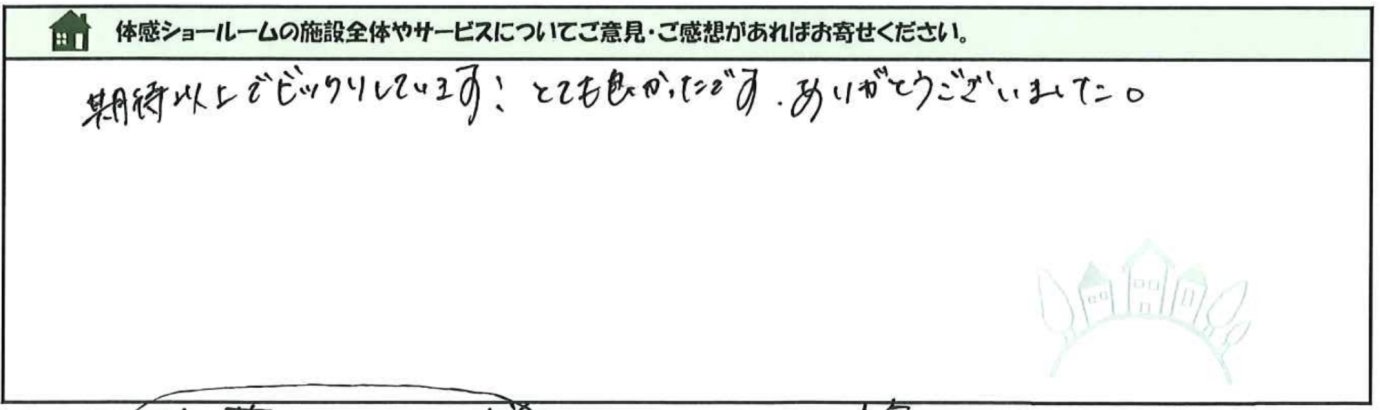 体感ショールームの施設全体やサービスについてご意見・ご感想があればお寄せください。
期待以上でビックリしています! とても良かったです.ありがとうございました。